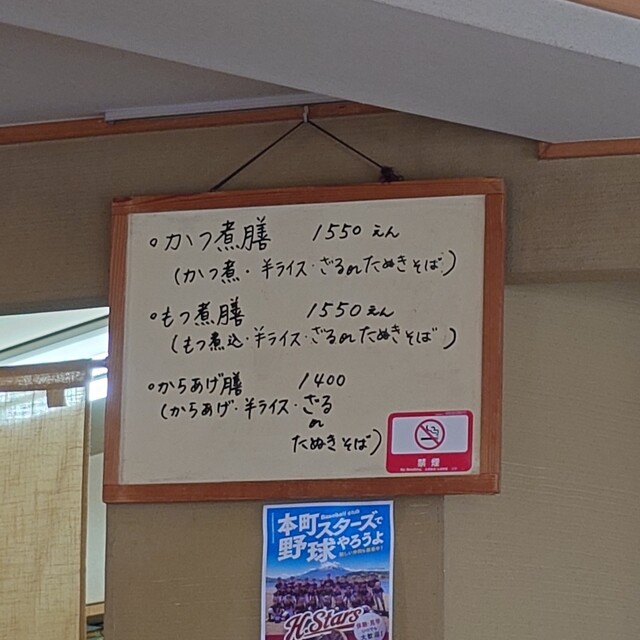 ○かつ煮膳 1550えん
(かつ煮・半ライス・ざるorたぬきそば)
○もつ煮膳 1550えん
(もつ煮込・半ライス・ざるorたぬきそば)
○からあげ膳 1400
(からあげ・半ライス・ざる
or
たぬきそば)
禁煙
No Smoking
Baseball club
本町スターズで
野球やろうよ
H・Stars